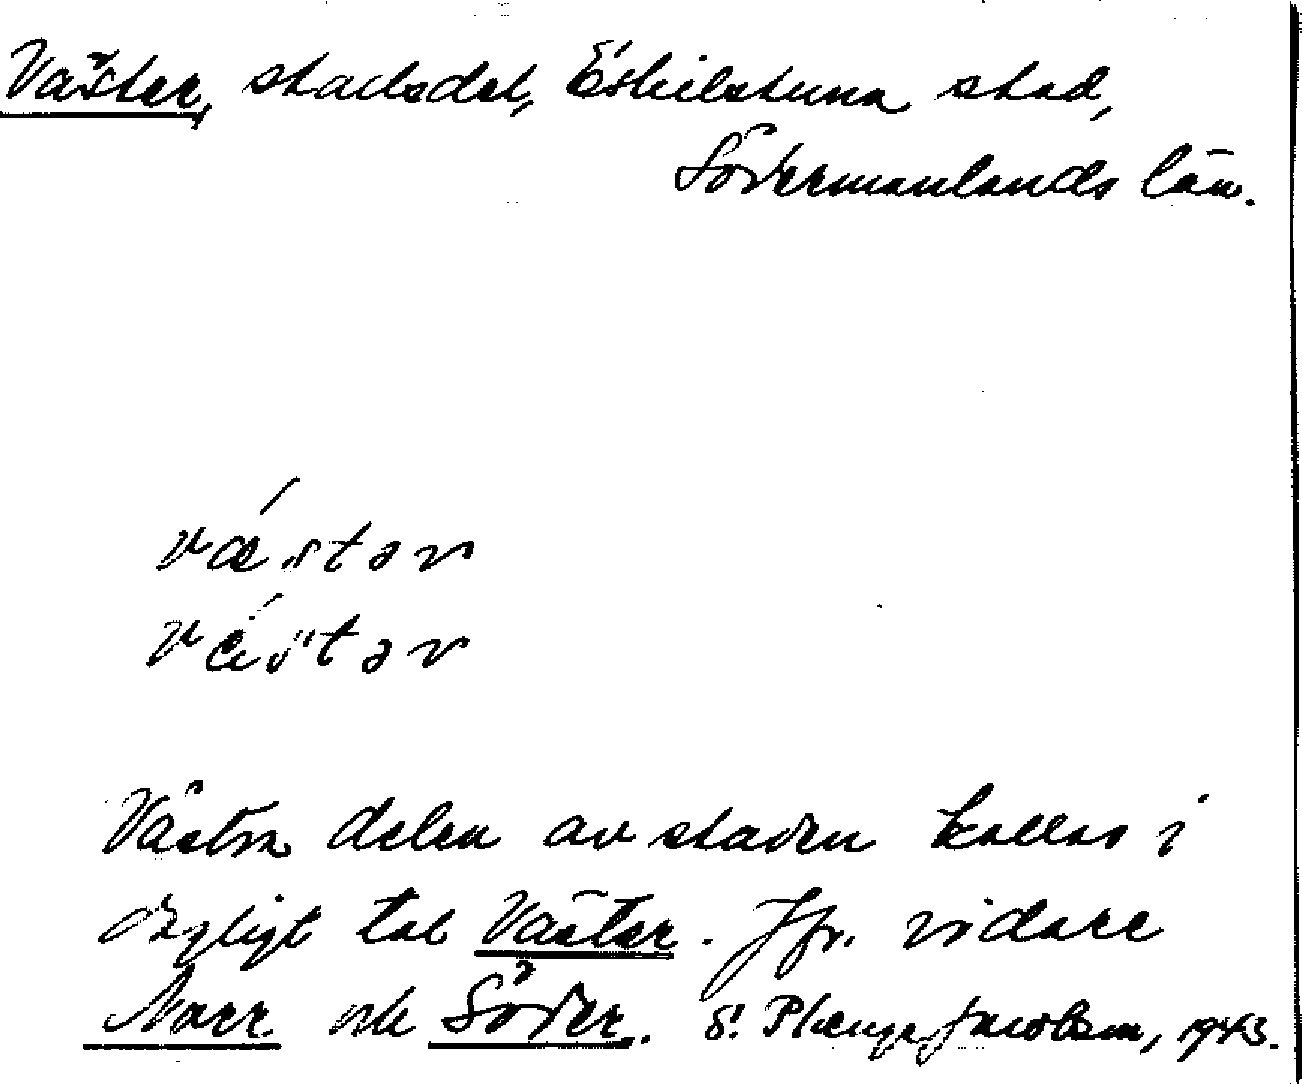 Väster, stadsdel, Eskilstuna stad,
Södermanlands län.
västər
västər
Västra delen av staden kallas i
dagligt tal Väster. Jfr. vidare
Norr och Söder. S. Plenge Jacobsen, 1943.